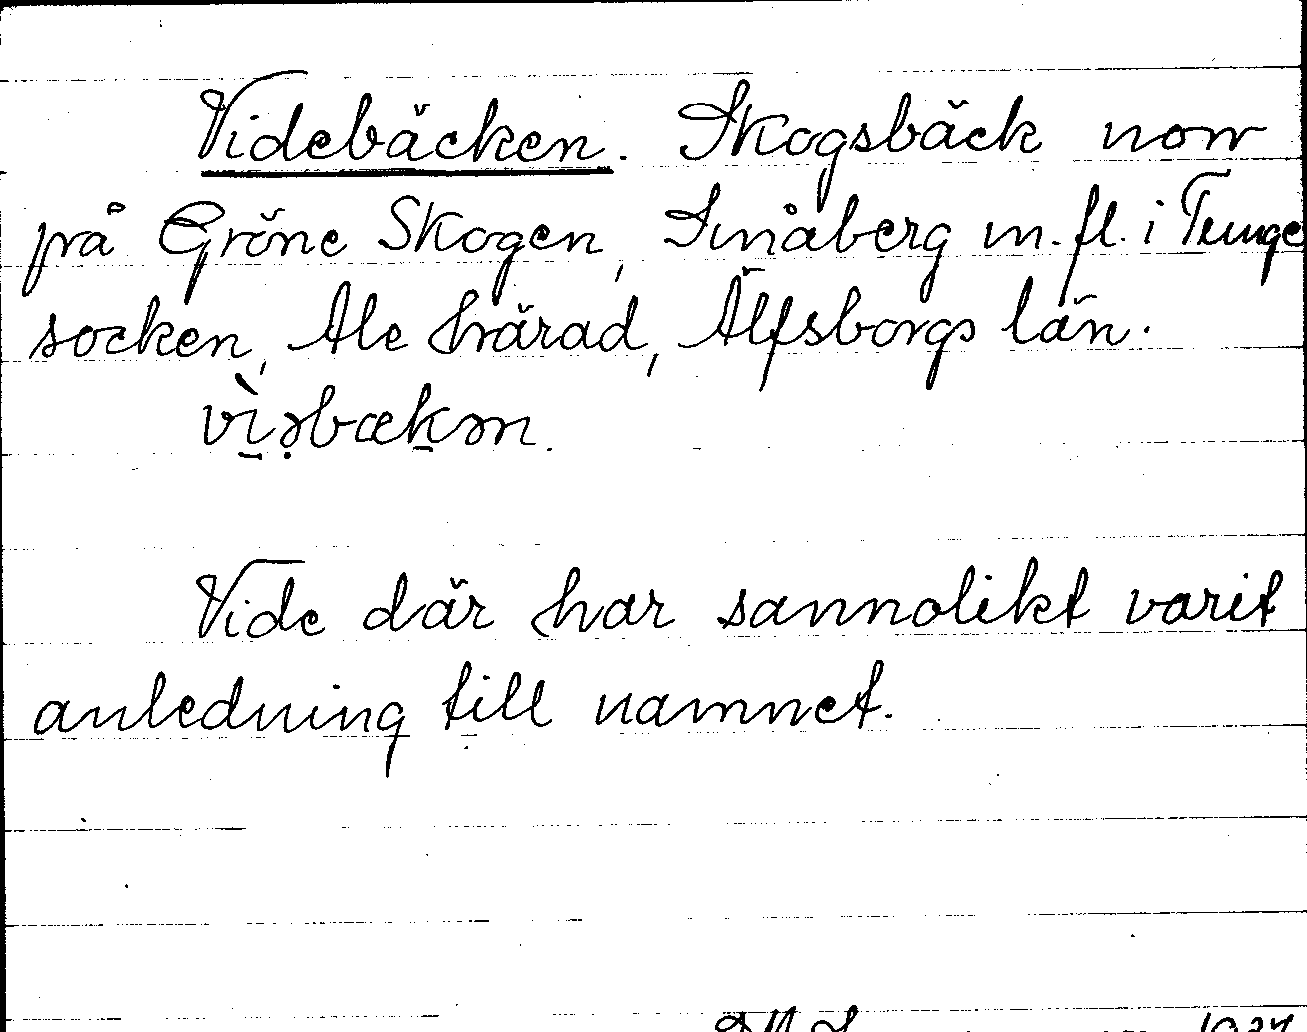 Videbäcken. Skogsbäck norr
på Gröne Skogen, Småberg m.fl. i Tunge
socken, Ale härad, Älfsborgs län.
vìəbækən.
Vide där har sannolikt varit
anledning till namnet.